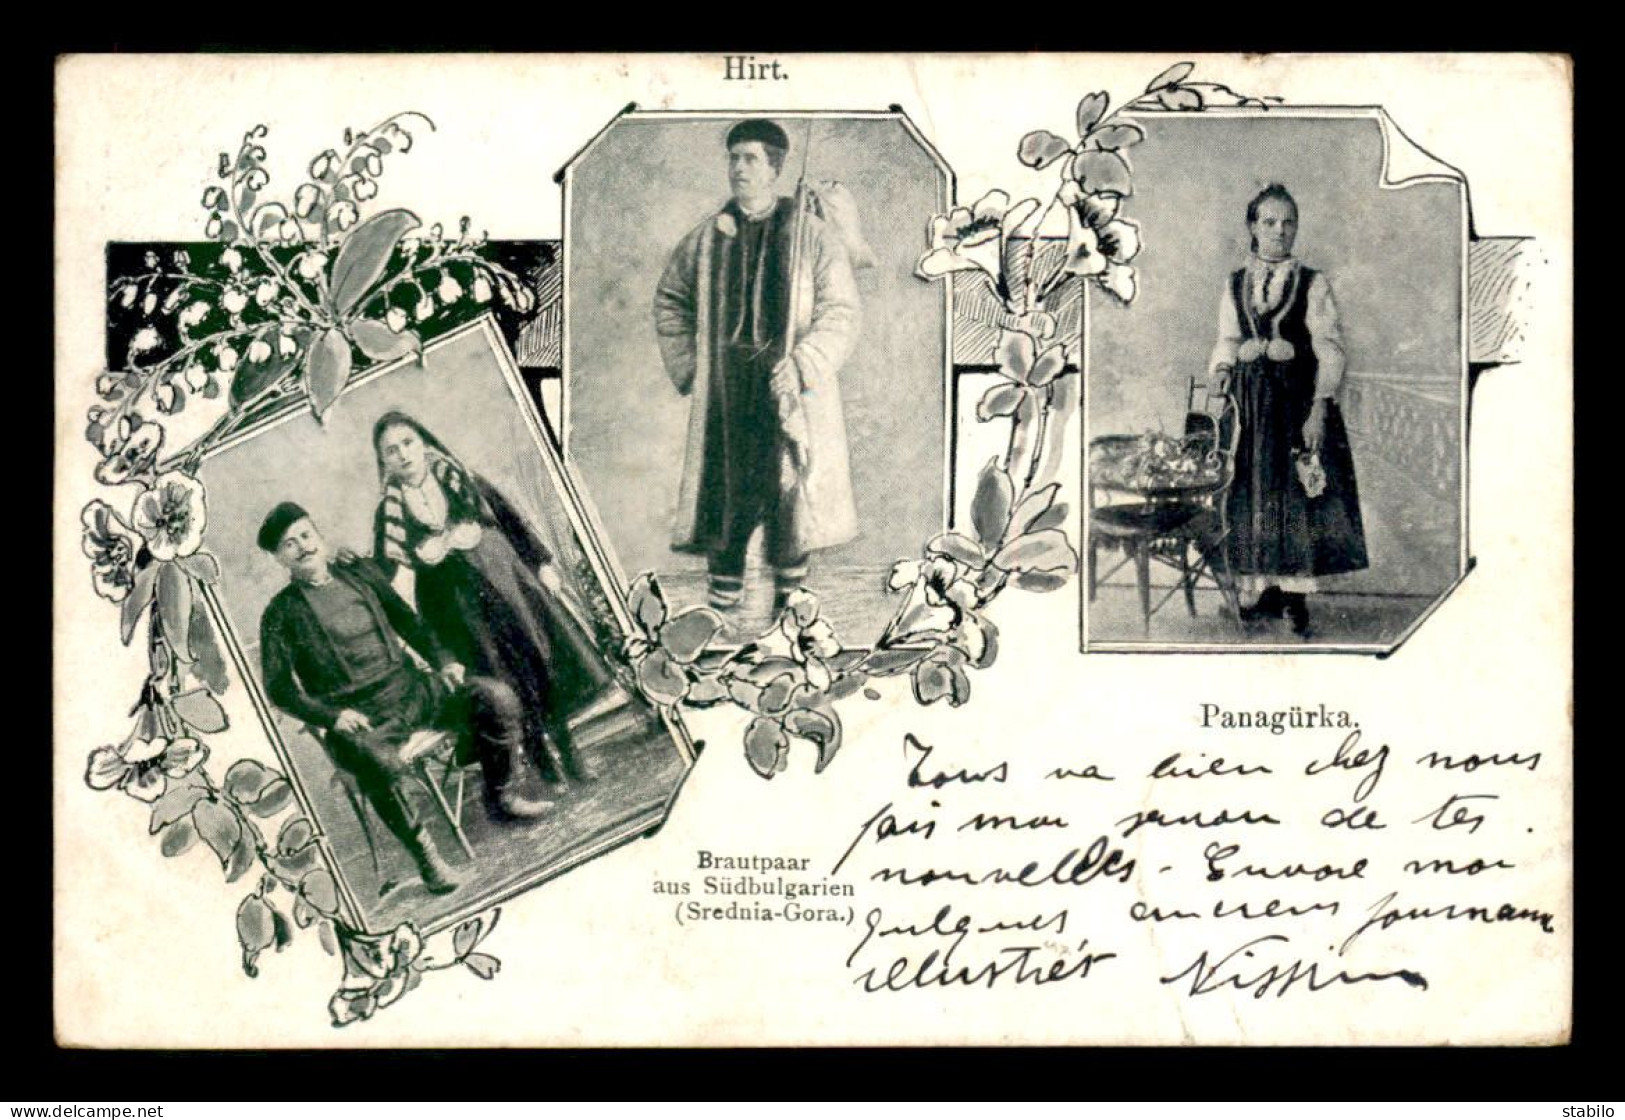 Hirt.
Panagürka.
Brautpaar
aus Südbulgarien
(Srednia-Gora.)
Tous va bien chez nous
fais moi savoir de tes
nouvelles - Envoie moi
quelques anciens journaux
illustrés Nissim
delcampe.net
stabilo